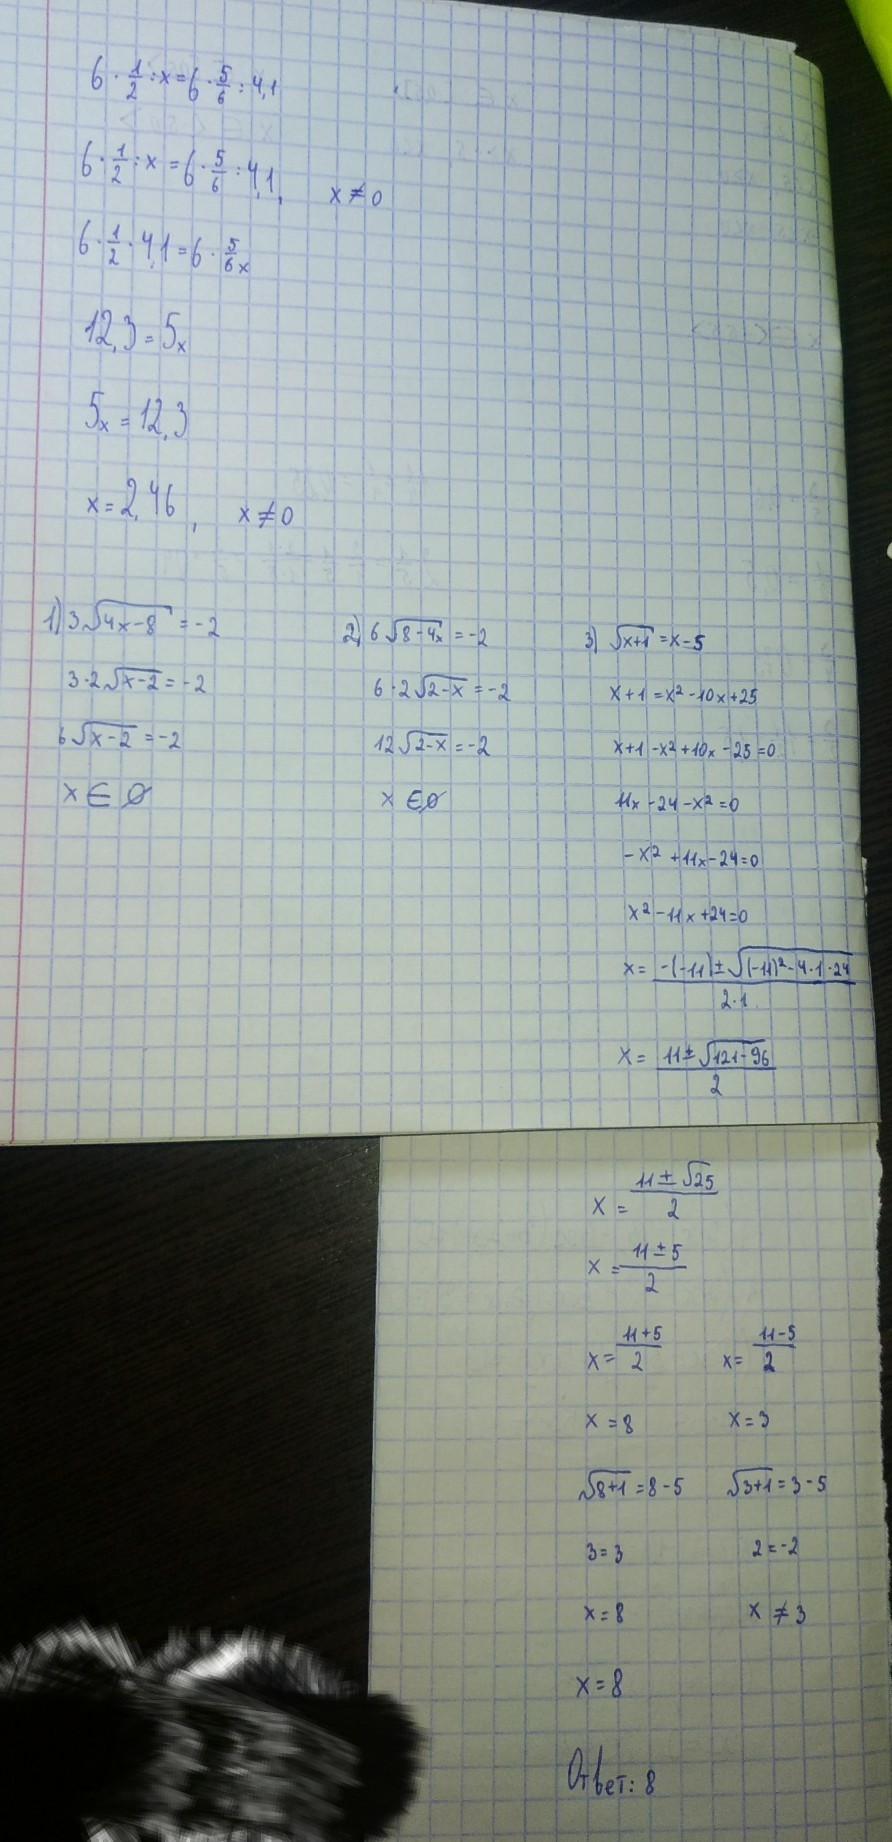 6 · 1/2 : x = 6 · 5/6 : 4,1
6 · 1/2 : x = 6 · 5/6 : 4,1, x ≠ 0
6 · 1/2 · 4,1 = 6 · 5/6 x
12,3 = 5x
5x = 12,3
x = 2,46, x ≠ 0
1) 3√(4x-8) = -2
3·2√(x-2) = -2
6√(x-2) = -2
x ∈ ∅
2) 6√(8-4x) = -2
6·2√(2-x) = -2
12√(2-x) = -2
x ∈ ∅
3) √(x+1) = x-5
x+1 = x² -10x+25
x+1 -x² +10x -25 = 0
11x -24 -x² = 0
-x² +11x -24 = 0
x² -11x +24 = 0
x = (-(-11) ± √((-11)² -4·1·24)) / (2·1)
x = (11 ± √(121-96)) / 2
x = (11 ± √25) / 2
x = (11 ± 5) / 2
x = (11+5)/2 x = (11-5)/2
x = 8 x = 3
√(8+1) = 8-5 √(3+1) = 3-5
3 = 3 2 = -2
x = 8 x ≠ 3
x = 8
Ответ: 8